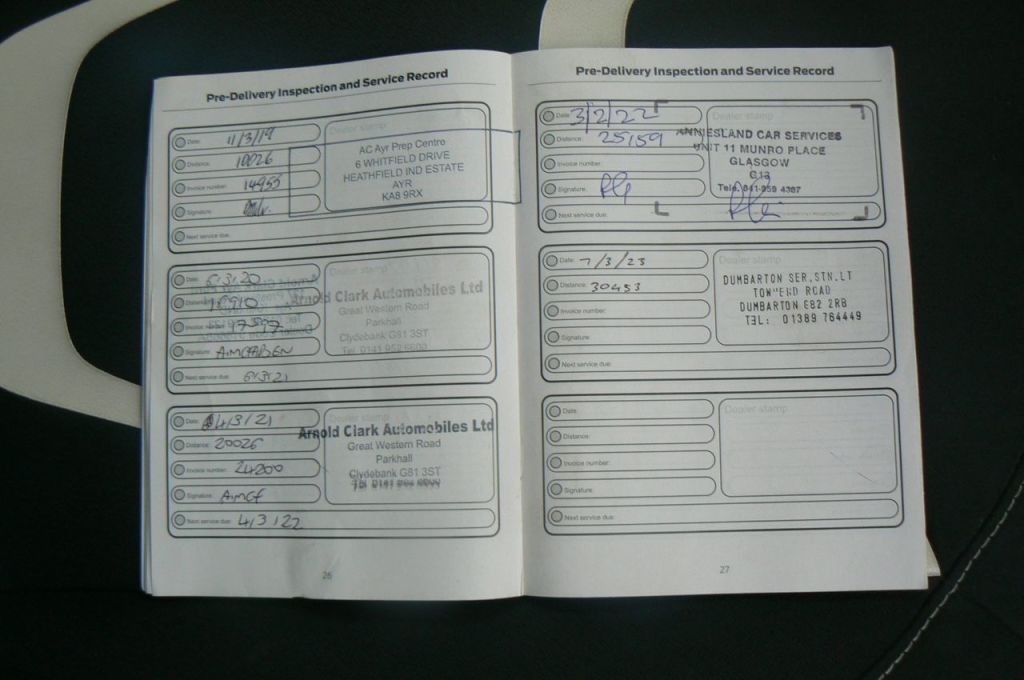 Pre-Delivery Inspection and Service Record
Date: 11/3/19
Distance: 10026
Invoice number: 14955
Signature:
Next service due:
Dealer stamp
AC Ayr Prep Centre
6 WHITFIELD DRIVE
HEATHFIELD IND ESTATE
AYR
KA8 9RX
Date: 6.3.20
Distance:
Invoice number: 17597
Signature:
Next service due: 6.3.21
Dealer stamp
Arnold Clark Automobiles Ltd
Great Western Road
Parkhall
Clydebank G81 3ST
Tel 0141 952 6600
Date: 4/3/21
Distance: 20026
Invoice number: 24200
Signature:
Next service due: 4/3/22
Dealer stamp
Arnold Clark Automobiles Ltd
Great Western Road
Parkhall
Clydebank G81 3ST
26
Pre-Delivery Inspection and Service Record
Date: 3/2/22
Distance: 25159
Invoice number:
Signature:
Next service due:
Dealer stamp
ANNIESLAND CAR SERVICES
UNIT 11 MUNRO PLACE
GLASGOW
G13
Date: 7/3/23
Distance: 30453
Invoice number:
Signature:
Next service due:
Dealer stamp
DUMBARTON SER.STN.LT
DUMBARTON G82 2RB
TEL: 01389 764449
Date:
Distance:
Invoice number:
Signature:
Next service due:
Dealer stamp
27